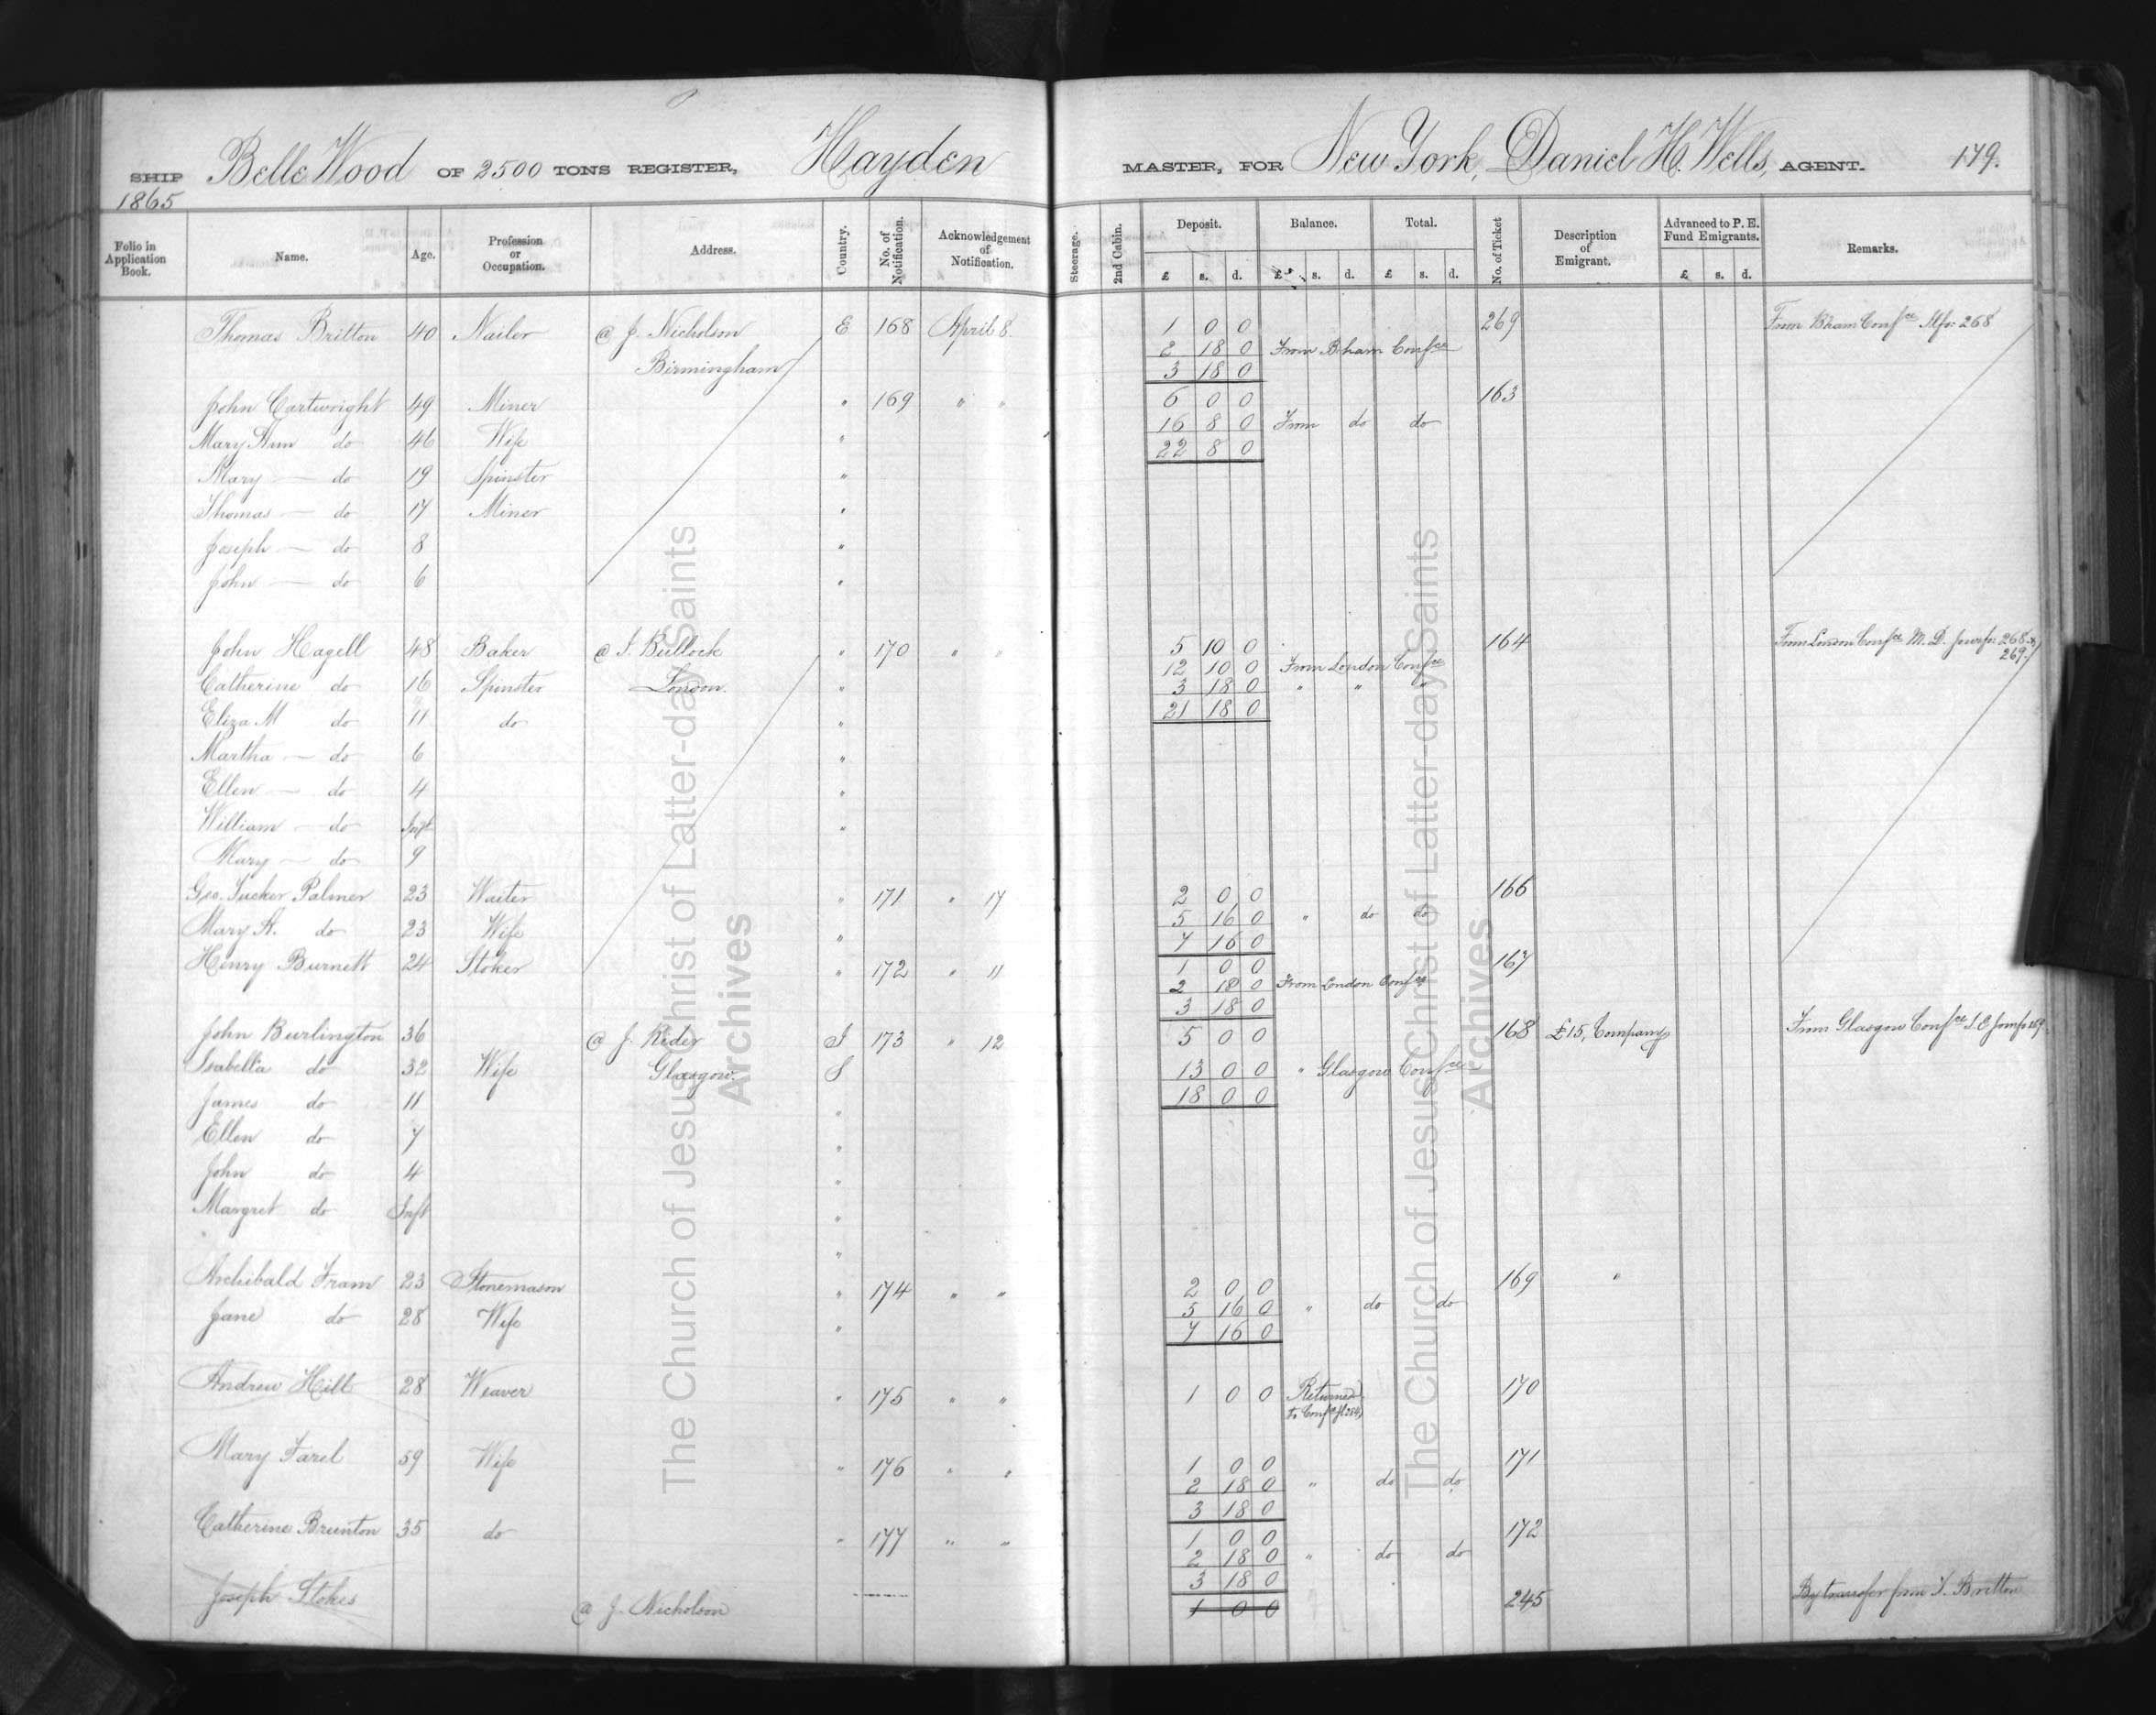 SHIP Belle Wood OF 2500 TONS REGISTER, Hayden MASTER, FOR New York, Daniel H. Wells, AGENT. 179.
1865
Folio in Application Book. Name. Age. Profession or Occupation. Address. Country. No. of Notification. Acknowledgement of Notification. Steerage. 2nd Cabin. Deposit. Balance. Total. No. of Ticket Description of Emigrant. Advanced to P. E. Fund Emigrants. Remarks.
£ s. d. £ s. d. £ s. d. £ s. d.
Thomas Britton 40 Nailer @ J. Nicholson E 168 April 8. 1 0 0 269 From Bham Confce 268
2 18 0 From B.ham Confce
Birmingham 3 18 0
John Cartwright 49 Miner " 169 " " 6 0 0 163
Mary Ann do 46 Wife " 16 8 0 From do do
22 8 0
Mary do 19 Spinster "
Thomas do 17 Miner "
Joseph do 8 "
John do 6 "
John Hagell 48 Baker @ T. Bullock " 170 " " 5 10 0 164 From London Confce M. D. 268 &
269.
12 10 0 From London Confce
Catherine do 16 Spinster London. " 3 18 0 " " "
Eliza M do 11 do " 21 18 0
Martha do 6 "
Ellen do 4 "
William do Inft "
Mary do 9
Geo. Tucker Palmer 23 Waiter " 171 " 17 2 0 0 166
Mary A. do 23 Wife " 5 16 0 " do do
7 16 0
Henry Burnett 24 Stoker " 172 " 11 1 0 0 167
2 18 0 From London Confce
3 18 0
John Burlington 36 @ J. Rider I 173 " 12 5 0 0 168 £15, Company From Glasgow Confce
Isabella do 32 Wife Glasgow. S 13 0 0 " Glasgow Confce
James do 11 " 18 0 0
Ellen do 7 "
John do 4 "
Margret do Inft "
"
Archibald Fram 23 Stonemason " 174 " " 2 0 0 169 "
Jane do 28 Wife " 5 16 0 " do do
7 16 0
Andrew Hill 28 Weaver " 175 " " 1 0 0 Returned 170
to Confce
Mary Farel 59 Wife " 176 " " 1 0 0 171
2 18 0 " do do
3 18 0
Catherine Brunton 35 do " 177 " " 1 0 0 172
2 18 0 " do do
3 18 0
Joseph Stokes @ J. Nicholson 1 0 0 245 By transfer from T. Britton
The Church of Jesus Christ of Latter-day Saints
Archives
The Church of Jesus Christ of Latter-day Saints
Archives